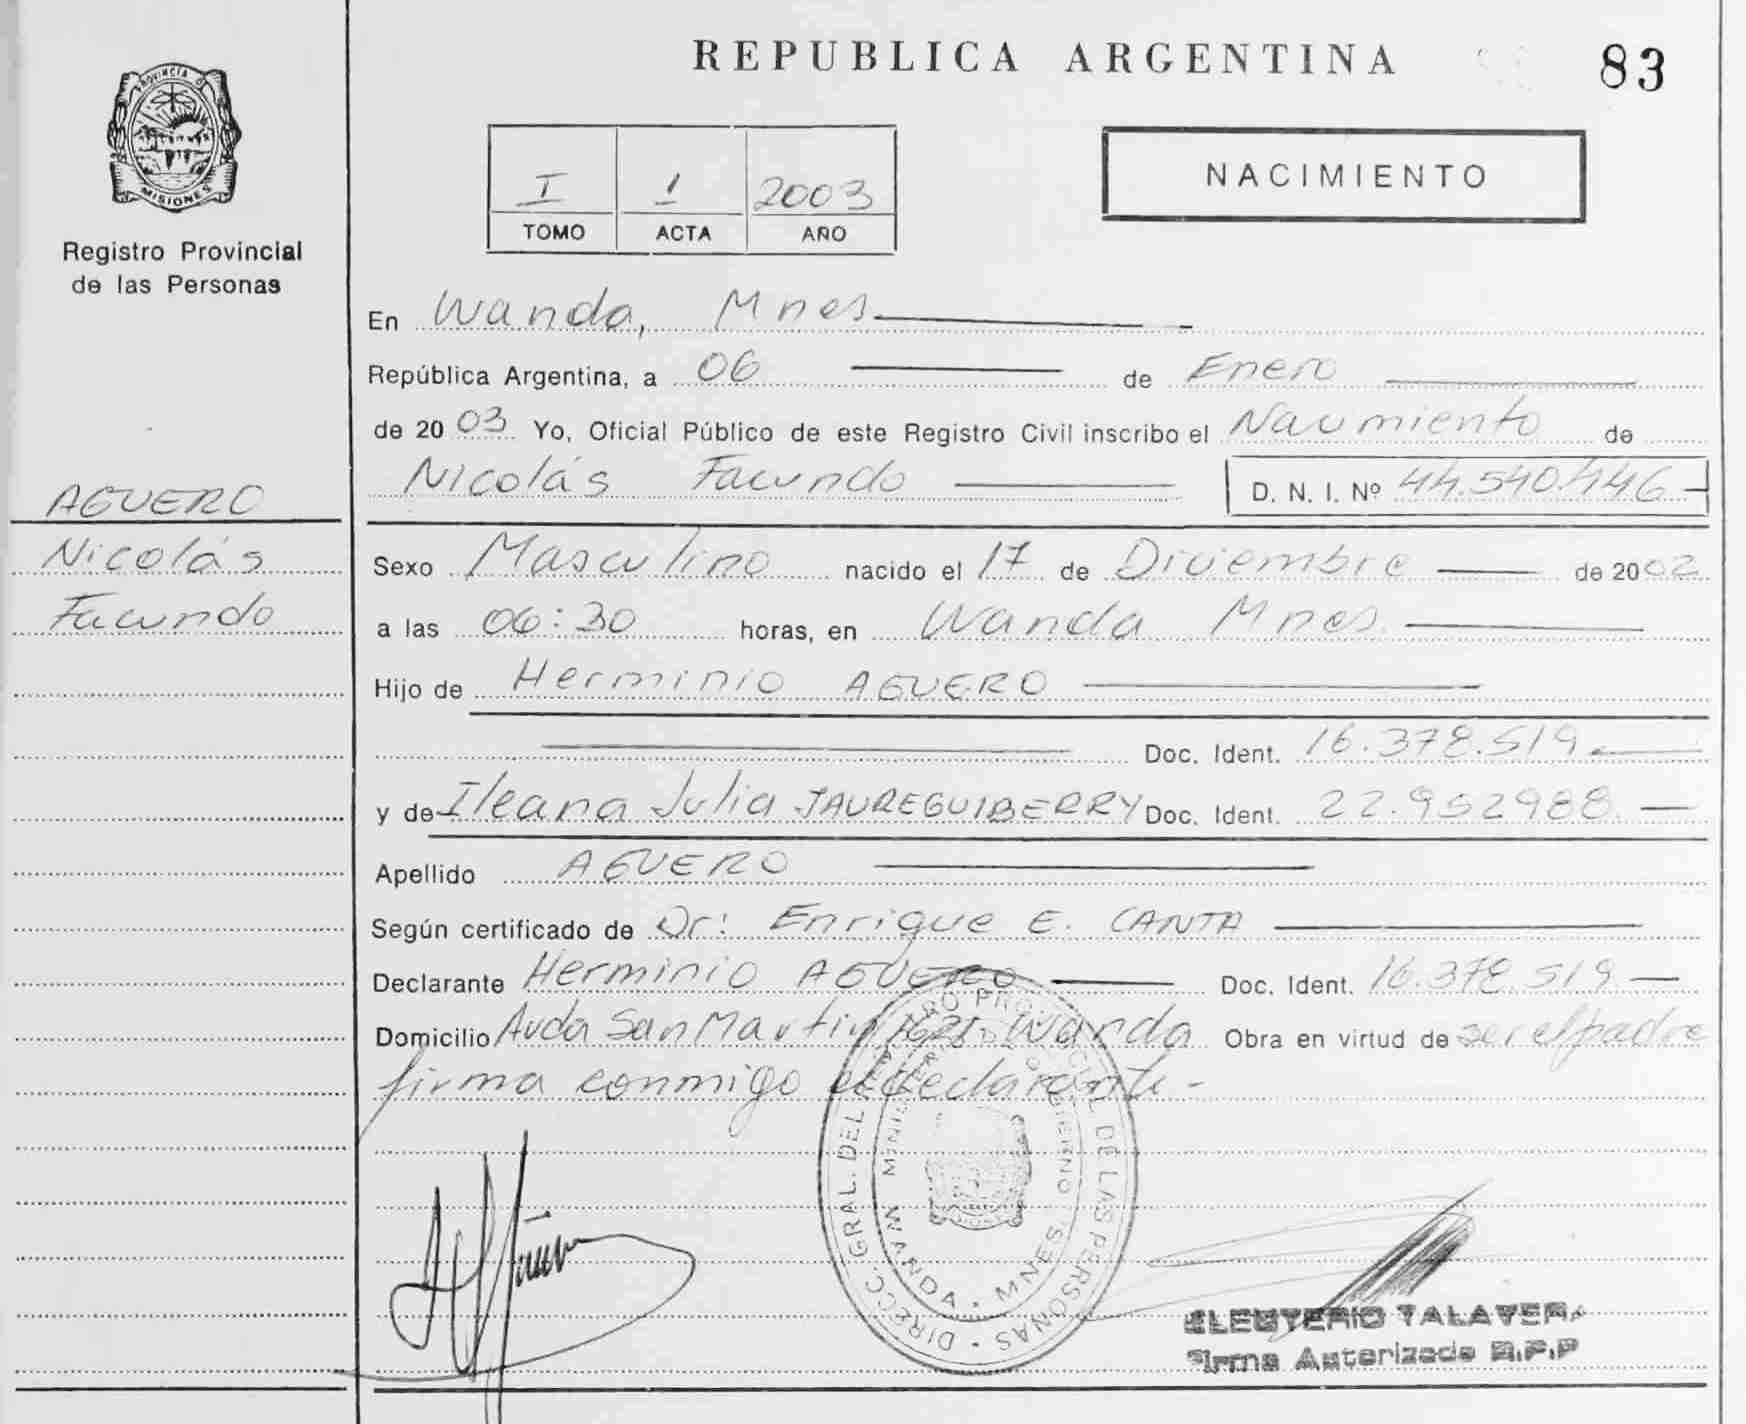 REPUBLICA ARGENTINA
83
PROVINCIA D
MISIONES
Registro Provincial
de las Personas
I 1 2003
TOMO ACTA AÑO
NACIMIENTO
En Wanda, Mnes
República Argentina, a 06 de Enero
de 2003 Yo, Oficial Público de este Registro Civil inscribo el Nacimiento de
Nicolás Facundo D. N. I. Nº 44.540.446
AGUERO
Nicolás
Facundo
Sexo Masculino nacido el 17 de Diciembre de 2002
a las 06:30 horas, en Wanda Mnes.
Hijo de Herminio AGUERO
Doc. Ident. 16.378.519
y de Ileana Julia JAUREGUIBERRY Doc. Ident. 22.952988.
Apellido AGUERO
Según certificado de Dr: Enrique E. CANTA
Declarante Herminio AGUERO Doc. Ident. 16.378.519
Domicilio Avda San Martin Wanda Obra en virtud de ser el padre
firma conmigo el declarante-
DIRECC. GRAL. DEL REGISTRO PROVINCIAL DE LAS PERSONAS
WANDA - MNES
ELEUTERIO TALAVERA
Firma Autorizada R.P.P